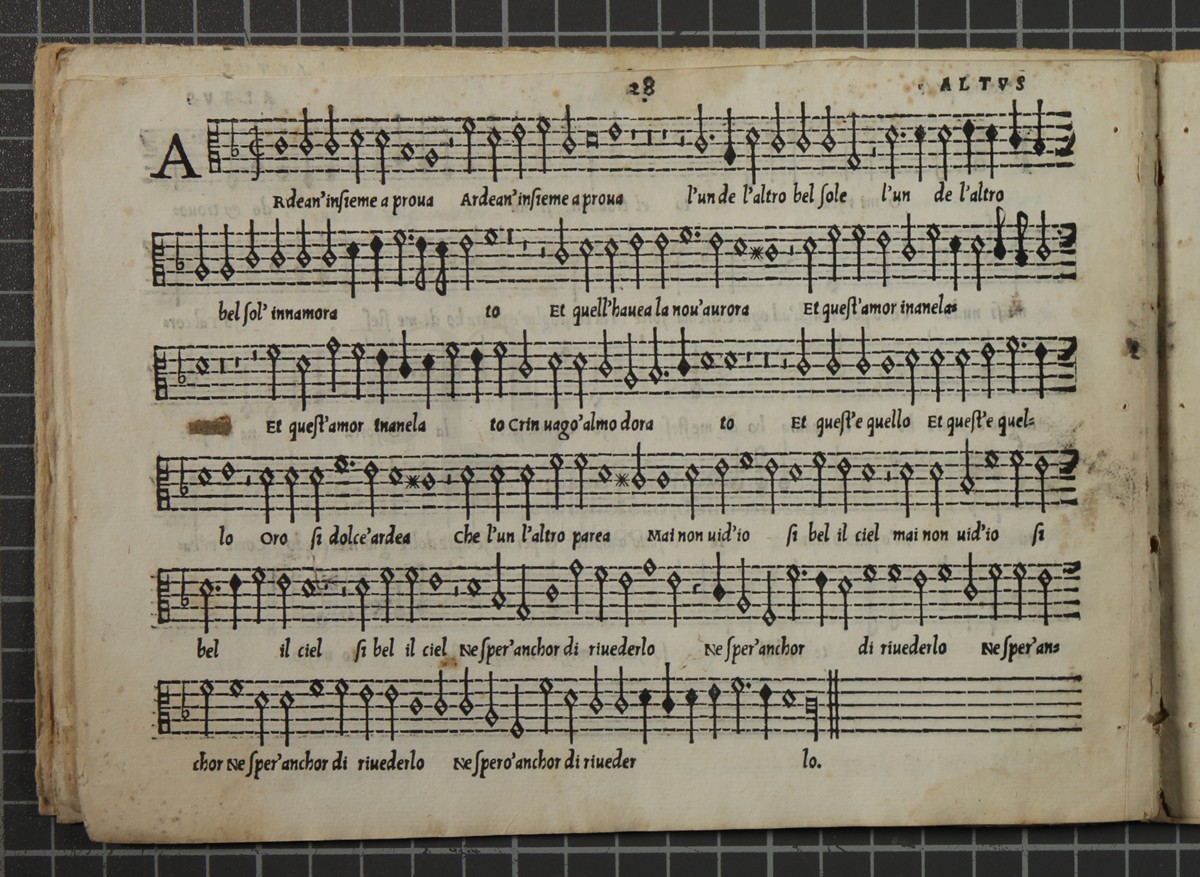 28 ALTVS
ARdean'insieme a proua Ardean'insieme a proua l'un de l'altro bel sole l'un de l'altro
bel sol' innamora to Et quell'hauea la nou'aurora Et quest'amor inanela=
Et quest'amor inanela to Crin uago'almo dora to Et quest'e quello Et quest'e quel=
lo Oro si dolce'ardea Che l'un l'altro parea Mai non uid'io si bel il ciel mai non uid'io si
bel il ciel si bel il ciel Ne sper'anchor di riuederlo Ne sper'anchor di riuederlo Ne sper'an=
chor Ne sper'anchor di riuederlo Ne spero'anchor di riueder lo.